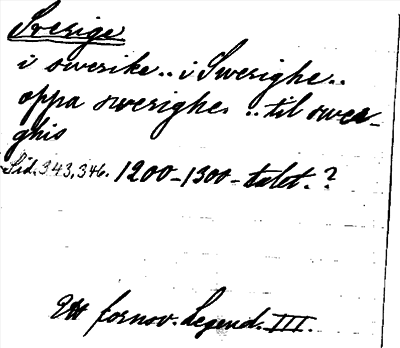 Sverige
i swerike.. i Swerighe..
oppa swerighe. .. til swer-
ghis
Sid. 343, 346. 1200-1300-talet.?
Ett fornsv. Legend. III.